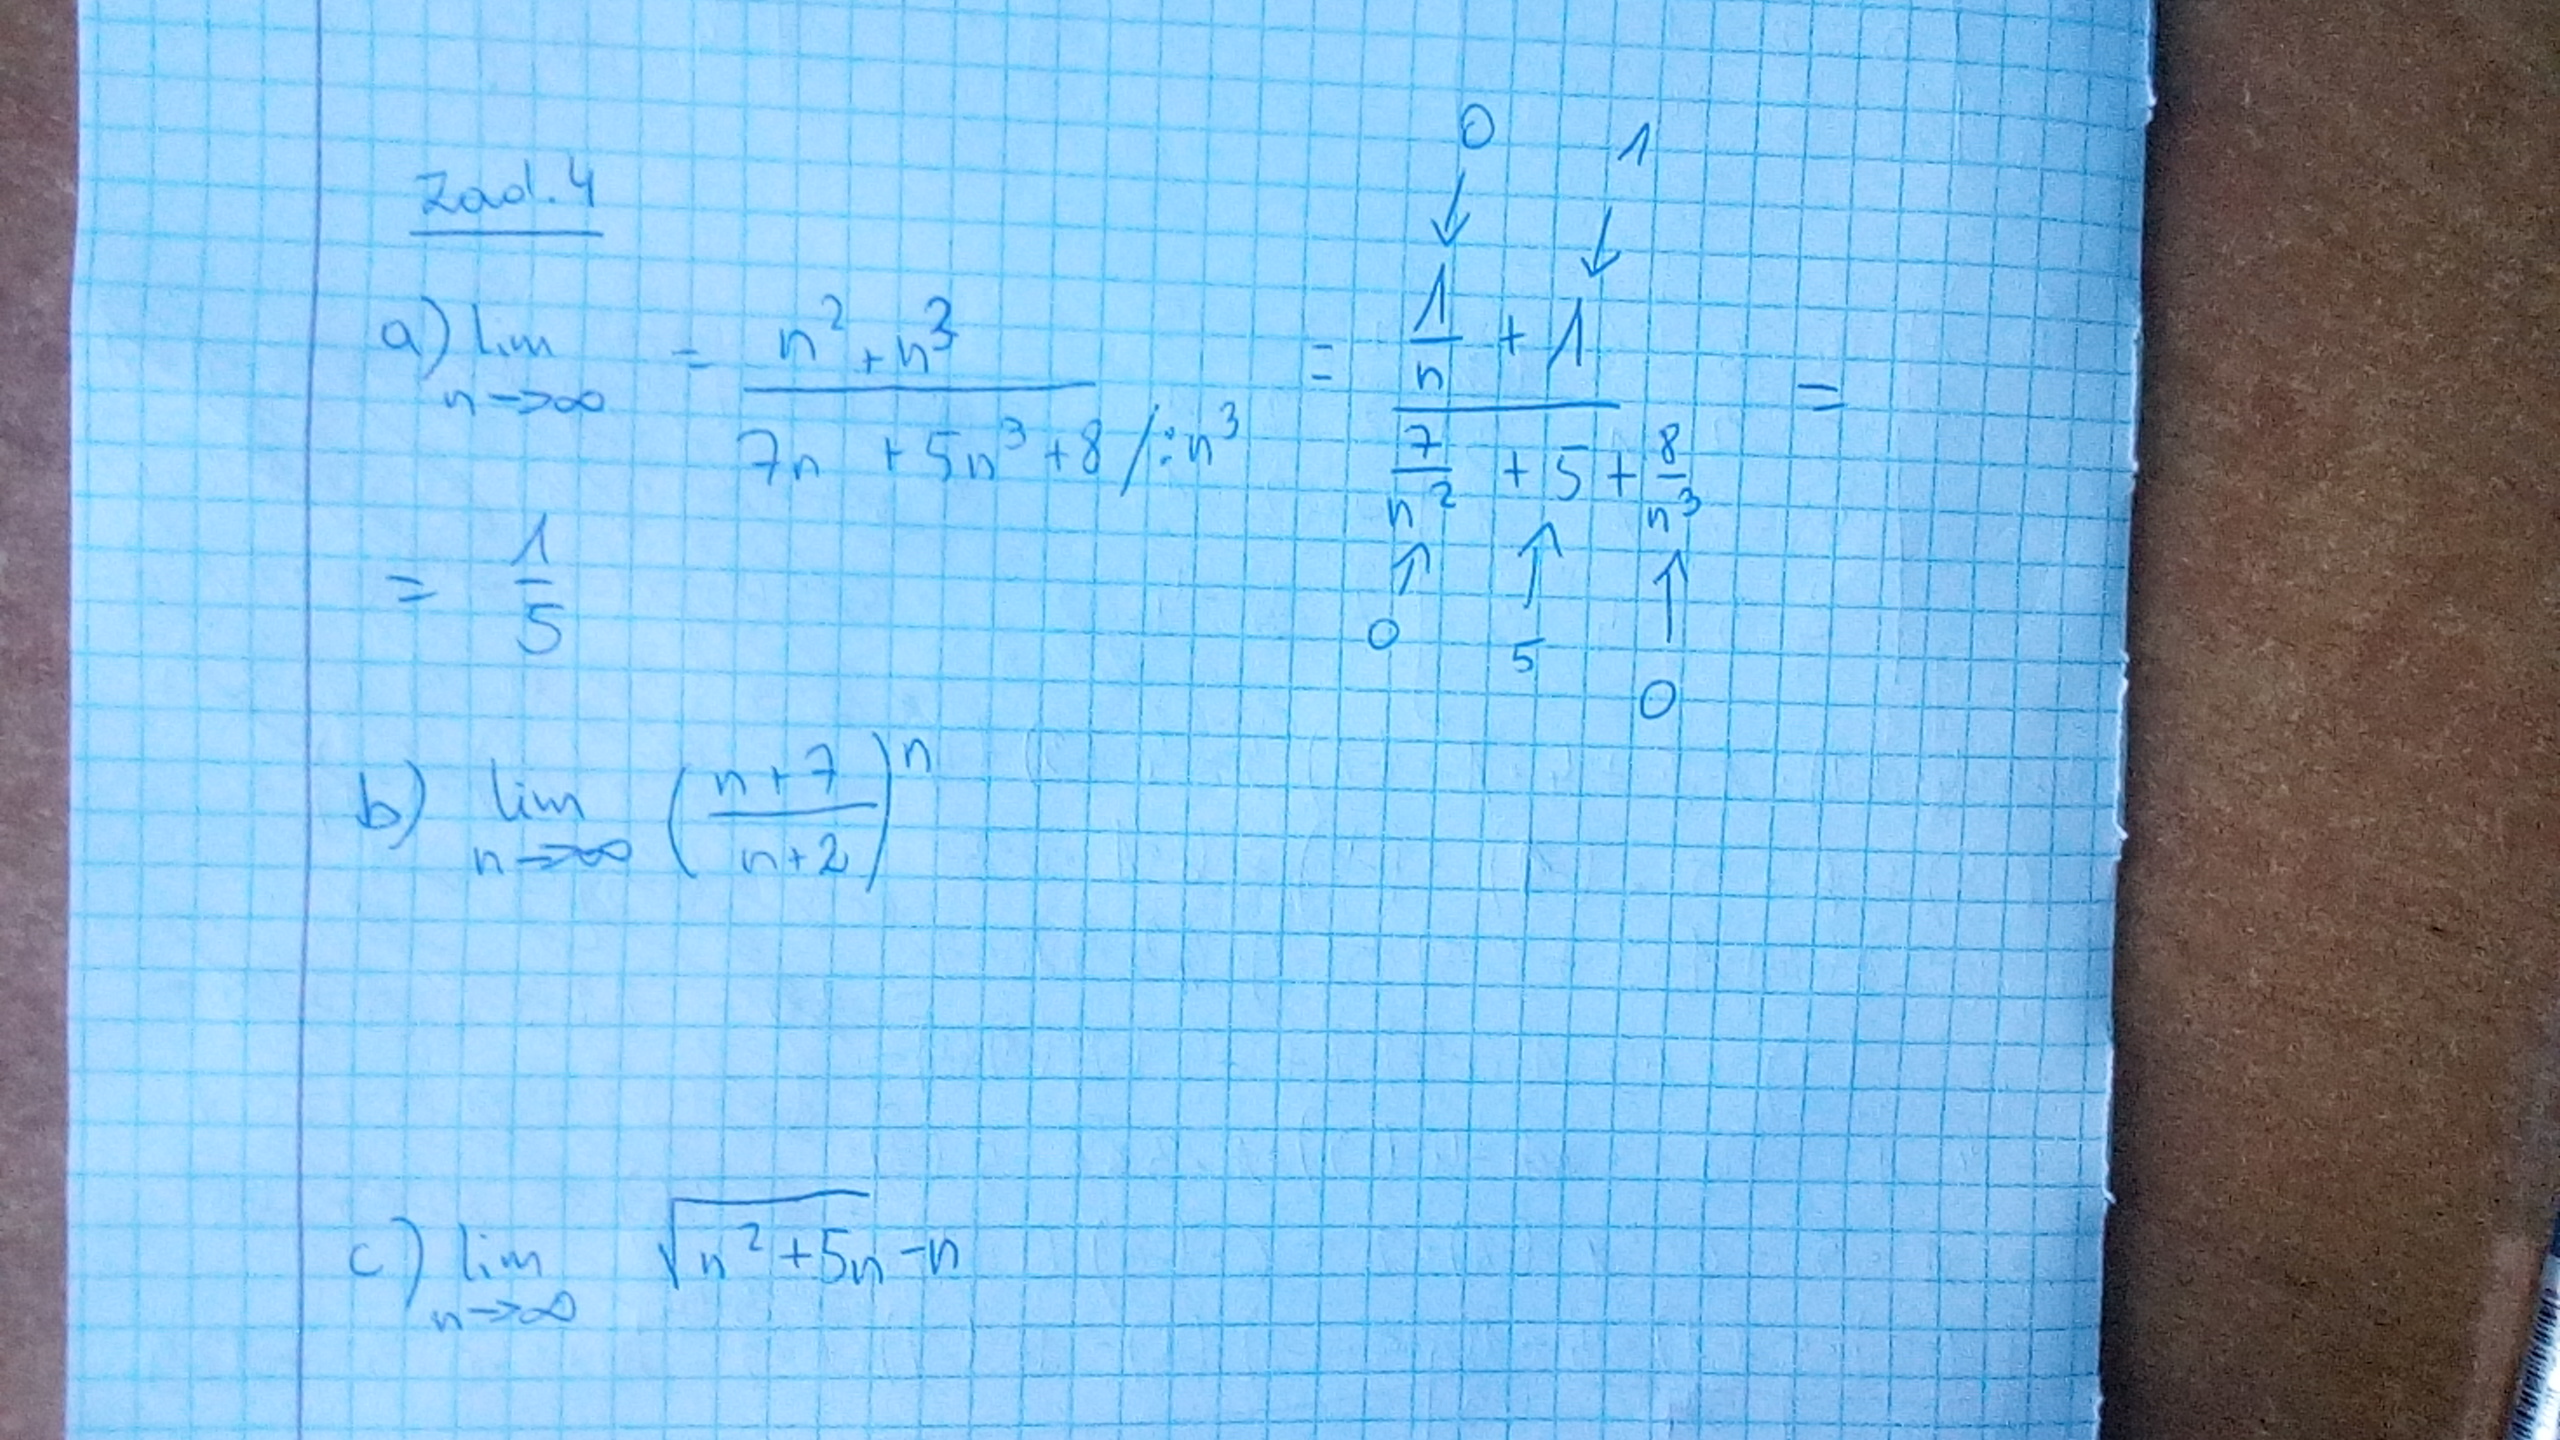 Zad. 4
0 1
↓ ↓
a) lim n→∞ = (n² + n³)/(7n + 5n³ + 8) /:n³ = (1/n + 1)/(7/n² + 5 + 8/n³) =
↑ ↑ ↑
0 5 0
= 1/5
b) lim n→∞ ((n+7)/(n+2))ⁿ
c) lim n→∞ √(n² + 5n) - n